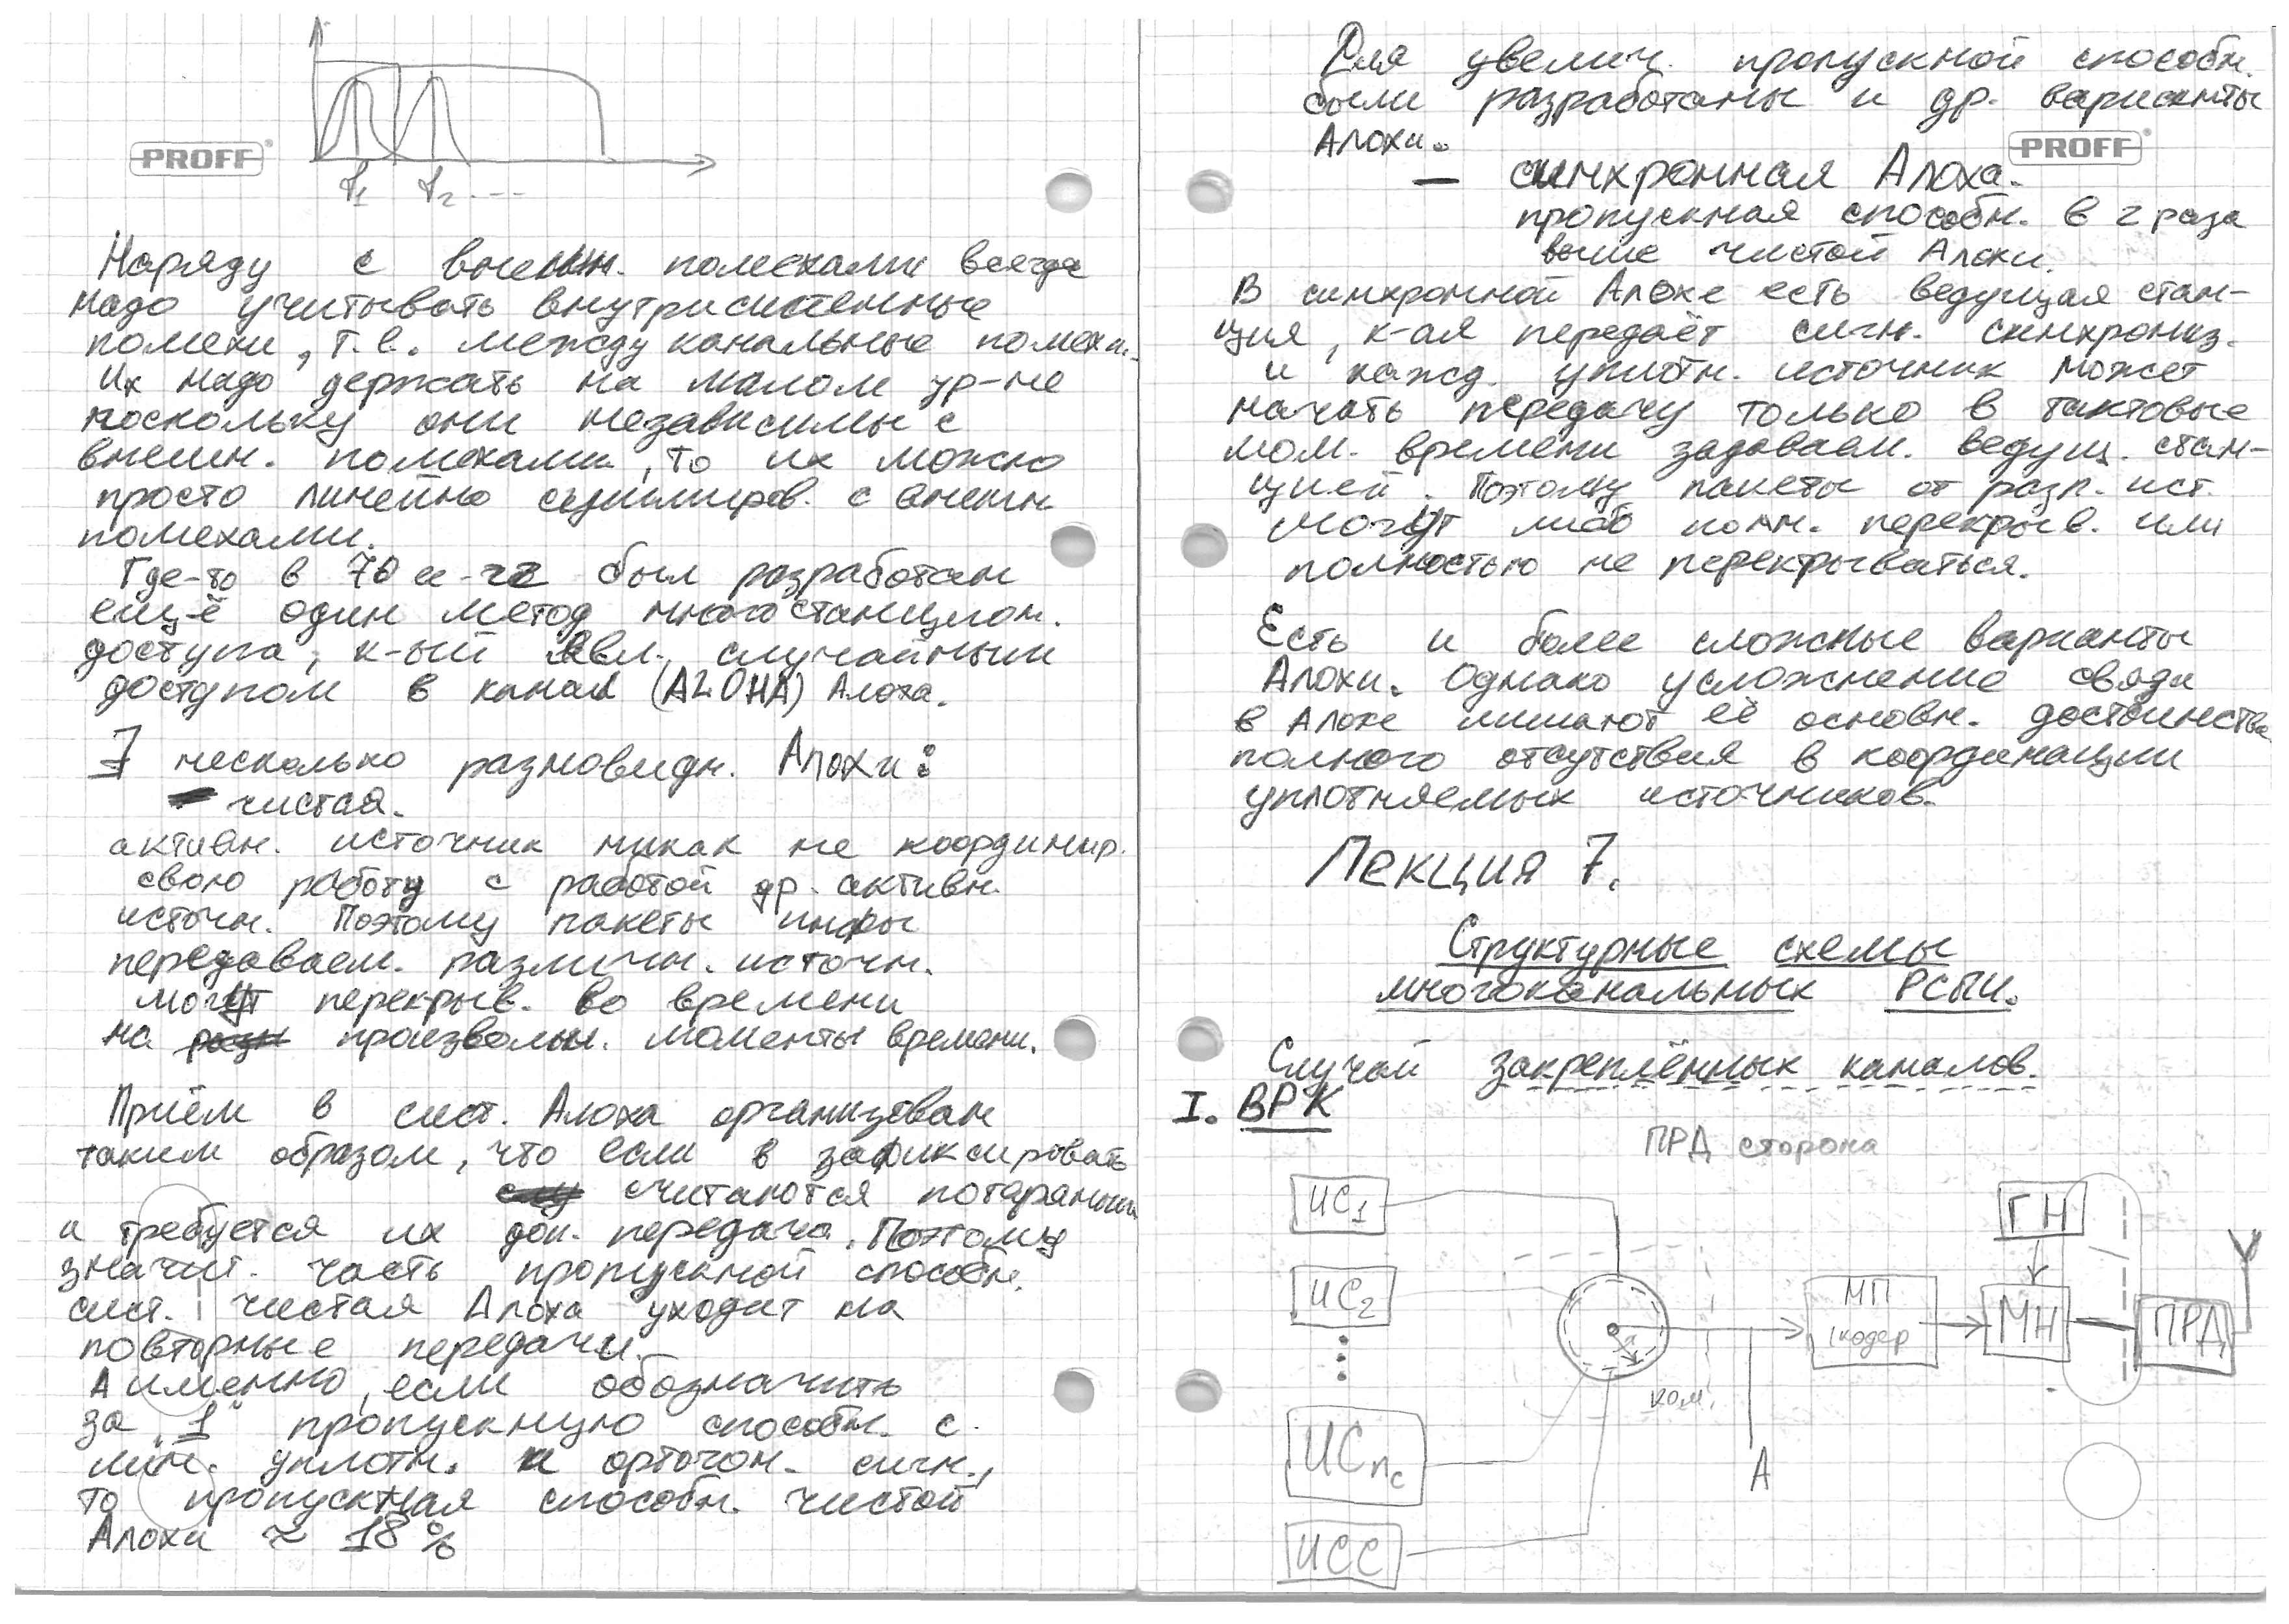 PROFF
f1 f2 ...
Наряду с внешн. помехами всегда
надо учитывать внутрисистемные
помехи, т.е. между канальные помехи.
Их надо держать на малом ур-не
поскольку они независимы с
внешн. помехами, то их можно
просто линейно суммиров. с внешн.
помехами.
Где-то в 70х был разработан
ещё один метод многостанцион.
доступа, к-ый явл. случайным
доступом в канал (ALOHA) Алоха.
∃ несколько разновидн. Алохи:
- чистая.
активн. источник никак не координир.
свою работу с работой др. активн.
источн. Поэтому пакеты инфы
передаваем. различн. источн.
могут перекрыв. во времени
на произвольн. моменты времени.
Приём в сист. Алоха организован
таким образом, что если в зафиксировать
считаются потерянными
и требуется их доп. передача. Поэтому
значит. часть пропускной способн.
сист. чистая Алоха уходит на
повторные передачи.
А именно, если обозначить
за "1" пропускную способн. с
лин. уплотн. и ортогон. сигн.,
то пропускная способн. чистой
Алохи ≈ 18%
Для увелич. пропускной способн.
были разработаны и др. варианты
Алохи.
PROFF
— синхронная Алоха.
пропускная способн. в 2 раза
выше чистой Алохи.
В синхронной Алохе есть ведущая стан-
ция, к-ая передаёт сигн. синхрониз.
и кажд. уплотн. источник может
начать передачу только в тактовые
мом. времени задаваем. ведущ. стан-
цией. Поэтому пакеты от разл. ист.
могут либо полн. перекрыв. или
полностью не перекрываться.
Есть и более сложные варианты
Алохи. Однако усложнение связи
в Алохе лишают её основн. достоинства
полного отсутствия в координации
уплотняемых источников.
Лекция 7.
Структурные схемы
многоканальных РСПИ.
Случай закреплённых каналов.
I. ВРК
ПРД сторона
ИС1
ГН
ИС2
МП
/кодер
МН
ПРД
ком.
ИСnc
А
ИСС